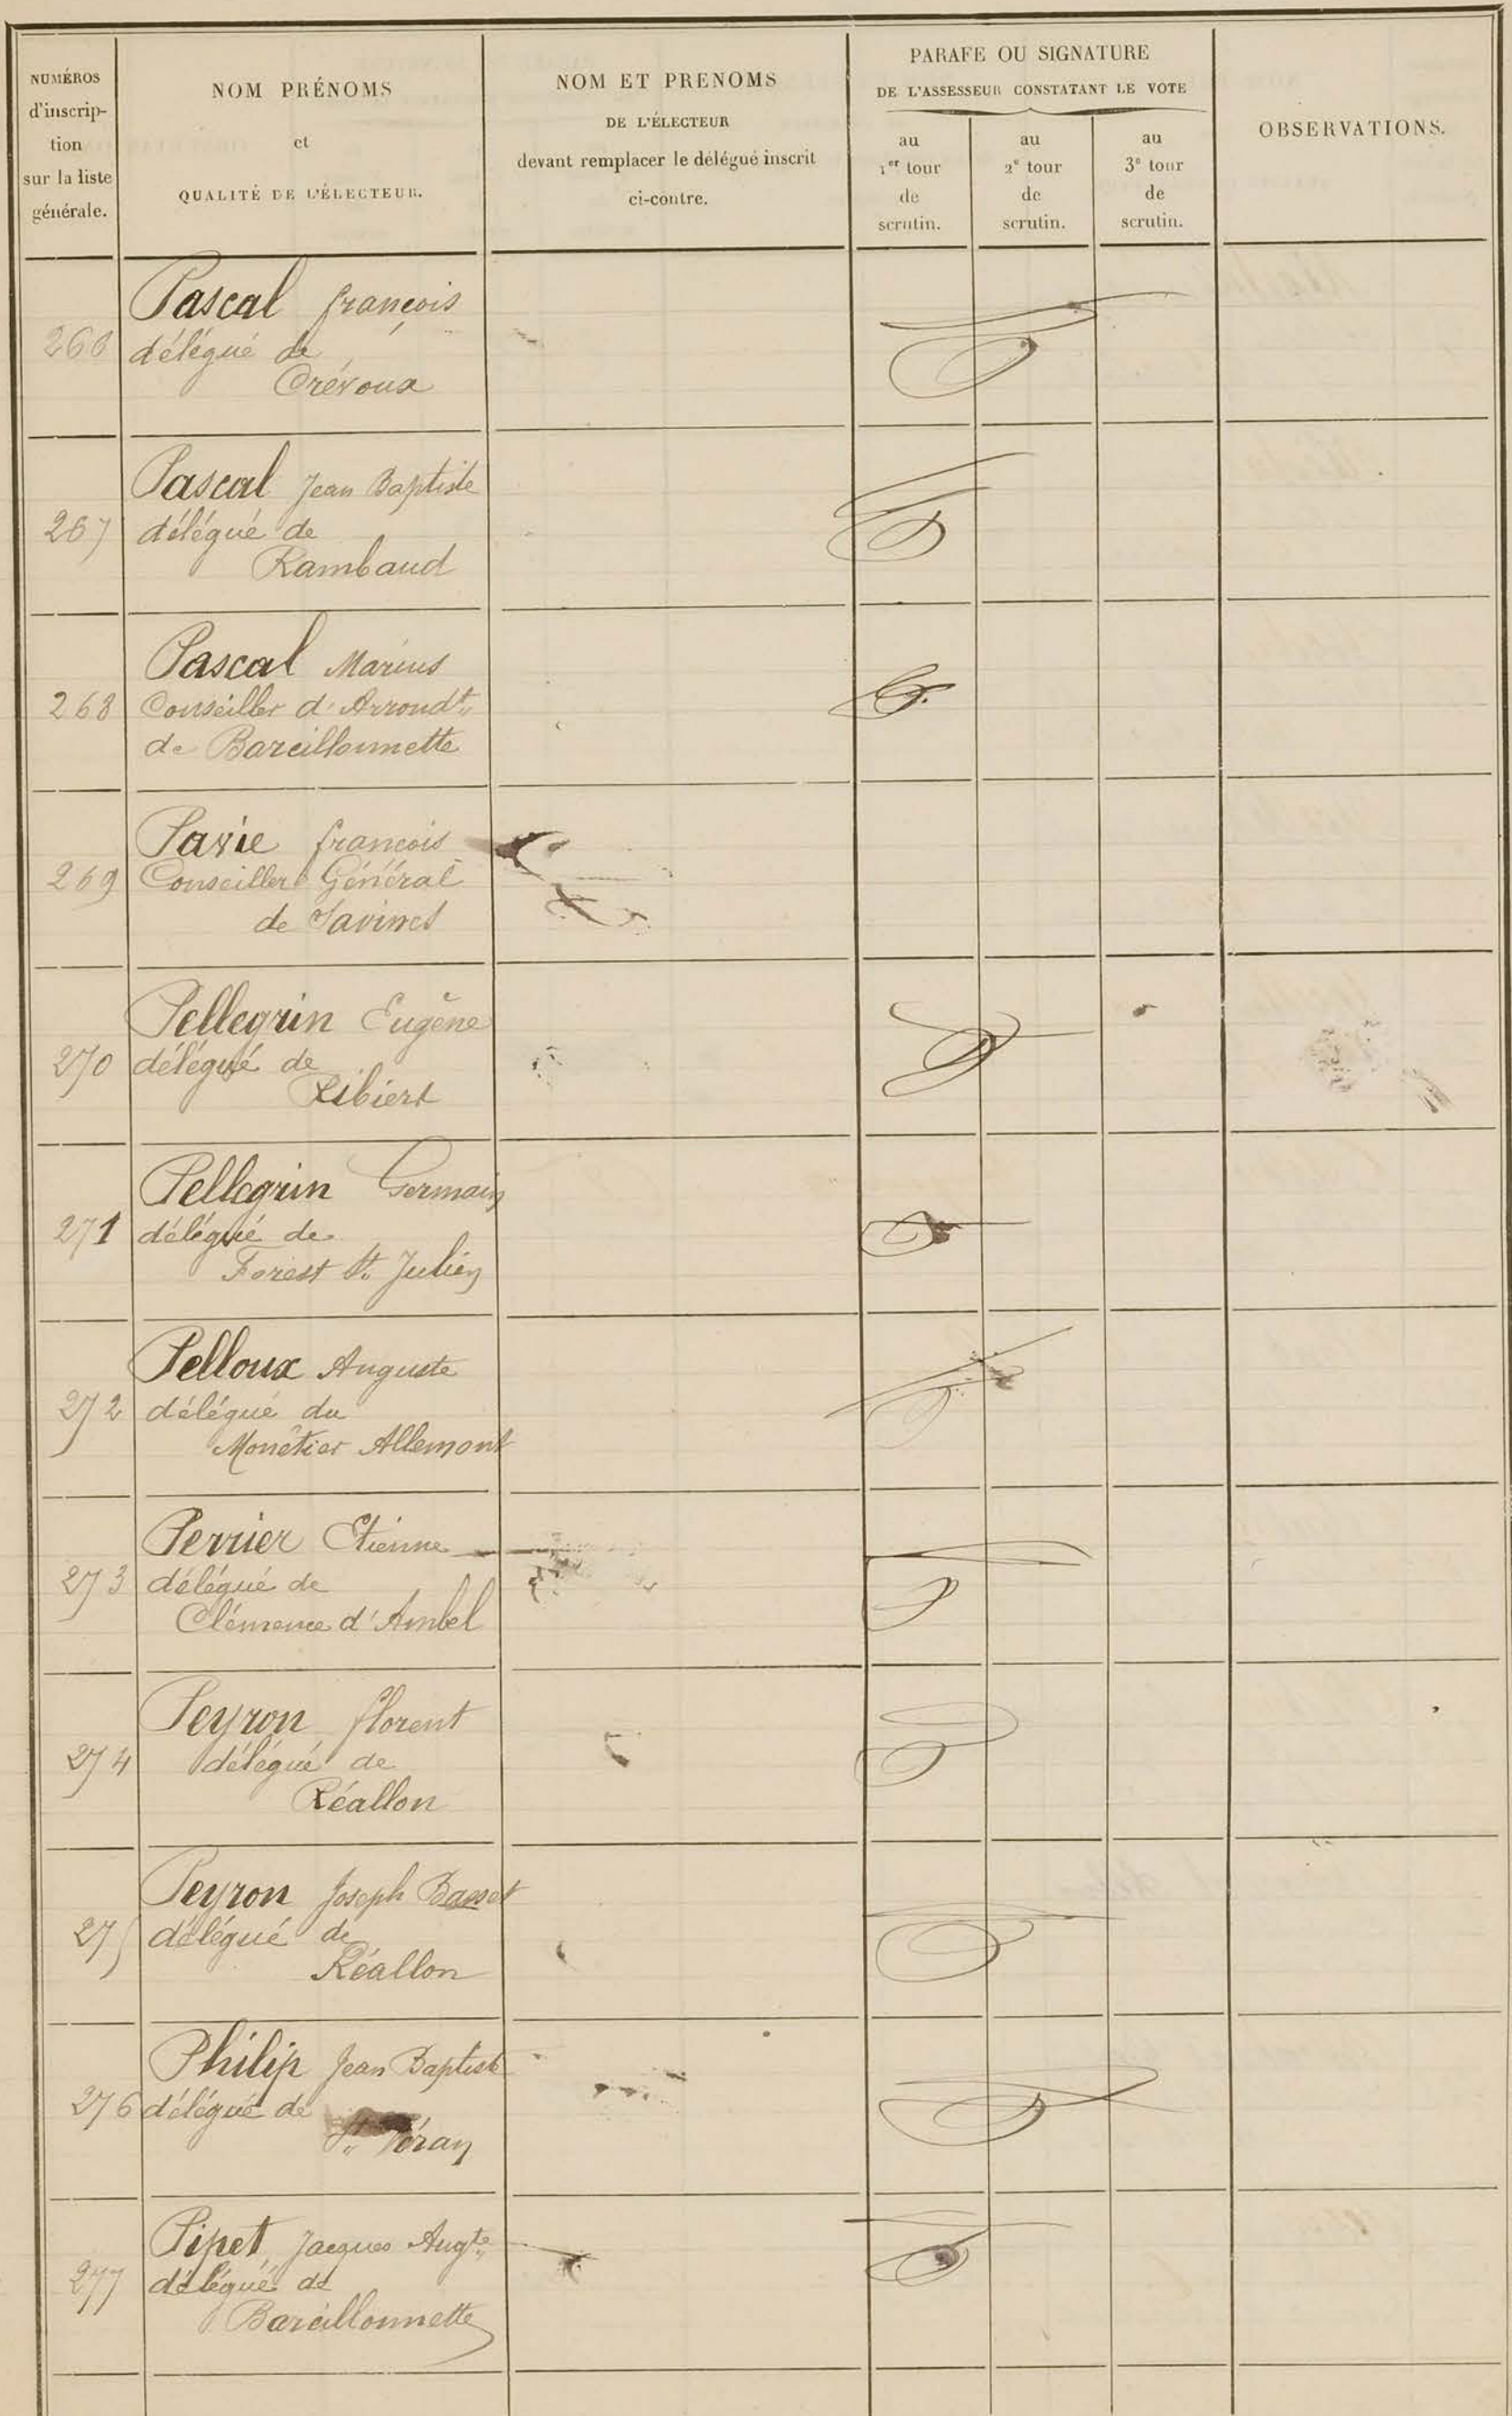 NUMÉROS
d'inscrip-
tion
sur la liste
générale.
NOM PRÉNOMS
et
QUALITÉ DE L'ÉLECTEUR.
NOM ET PRENOMS
DE L'ÉLECTEUR
devant remplacer le délégué inscrit
ci-contre.
PARAFE OU SIGNATURE
DE L'ASSESSEUR CONSTATANT LE VOTE
au
1er tour
de
scrutin.
au
2e tour
de
scrutin.
au
3e tour
de
scrutin.
OBSERVATIONS.
Pascal françois
266 délégué de
Crévoux
Pascal Jean Baptiste
267 délégué de
Rambaud
Pascal Marius
268 Conseiller d'Arrondt
de Barcillonnette
Pavie françois
269 Conseiller Général
de Savines
Pellegrin Eugène
270 délégué de
Ribiers
Pellegrin Germain
271 délégué de
Forest St Julien
Pelloux Auguste
272 délégué du
Monêtier Allemont
Perrier Etienne
273 délégué de
Clémence d'Ambel
Peyron florent
274 délégué de
Réallon
Peyron Joseph Basset
275 délégué de
Réallon
Philip Jean Baptiste
276 délégué de
St Véran
Pipet Jacques Augte
277 délégué de
Barcillonnette